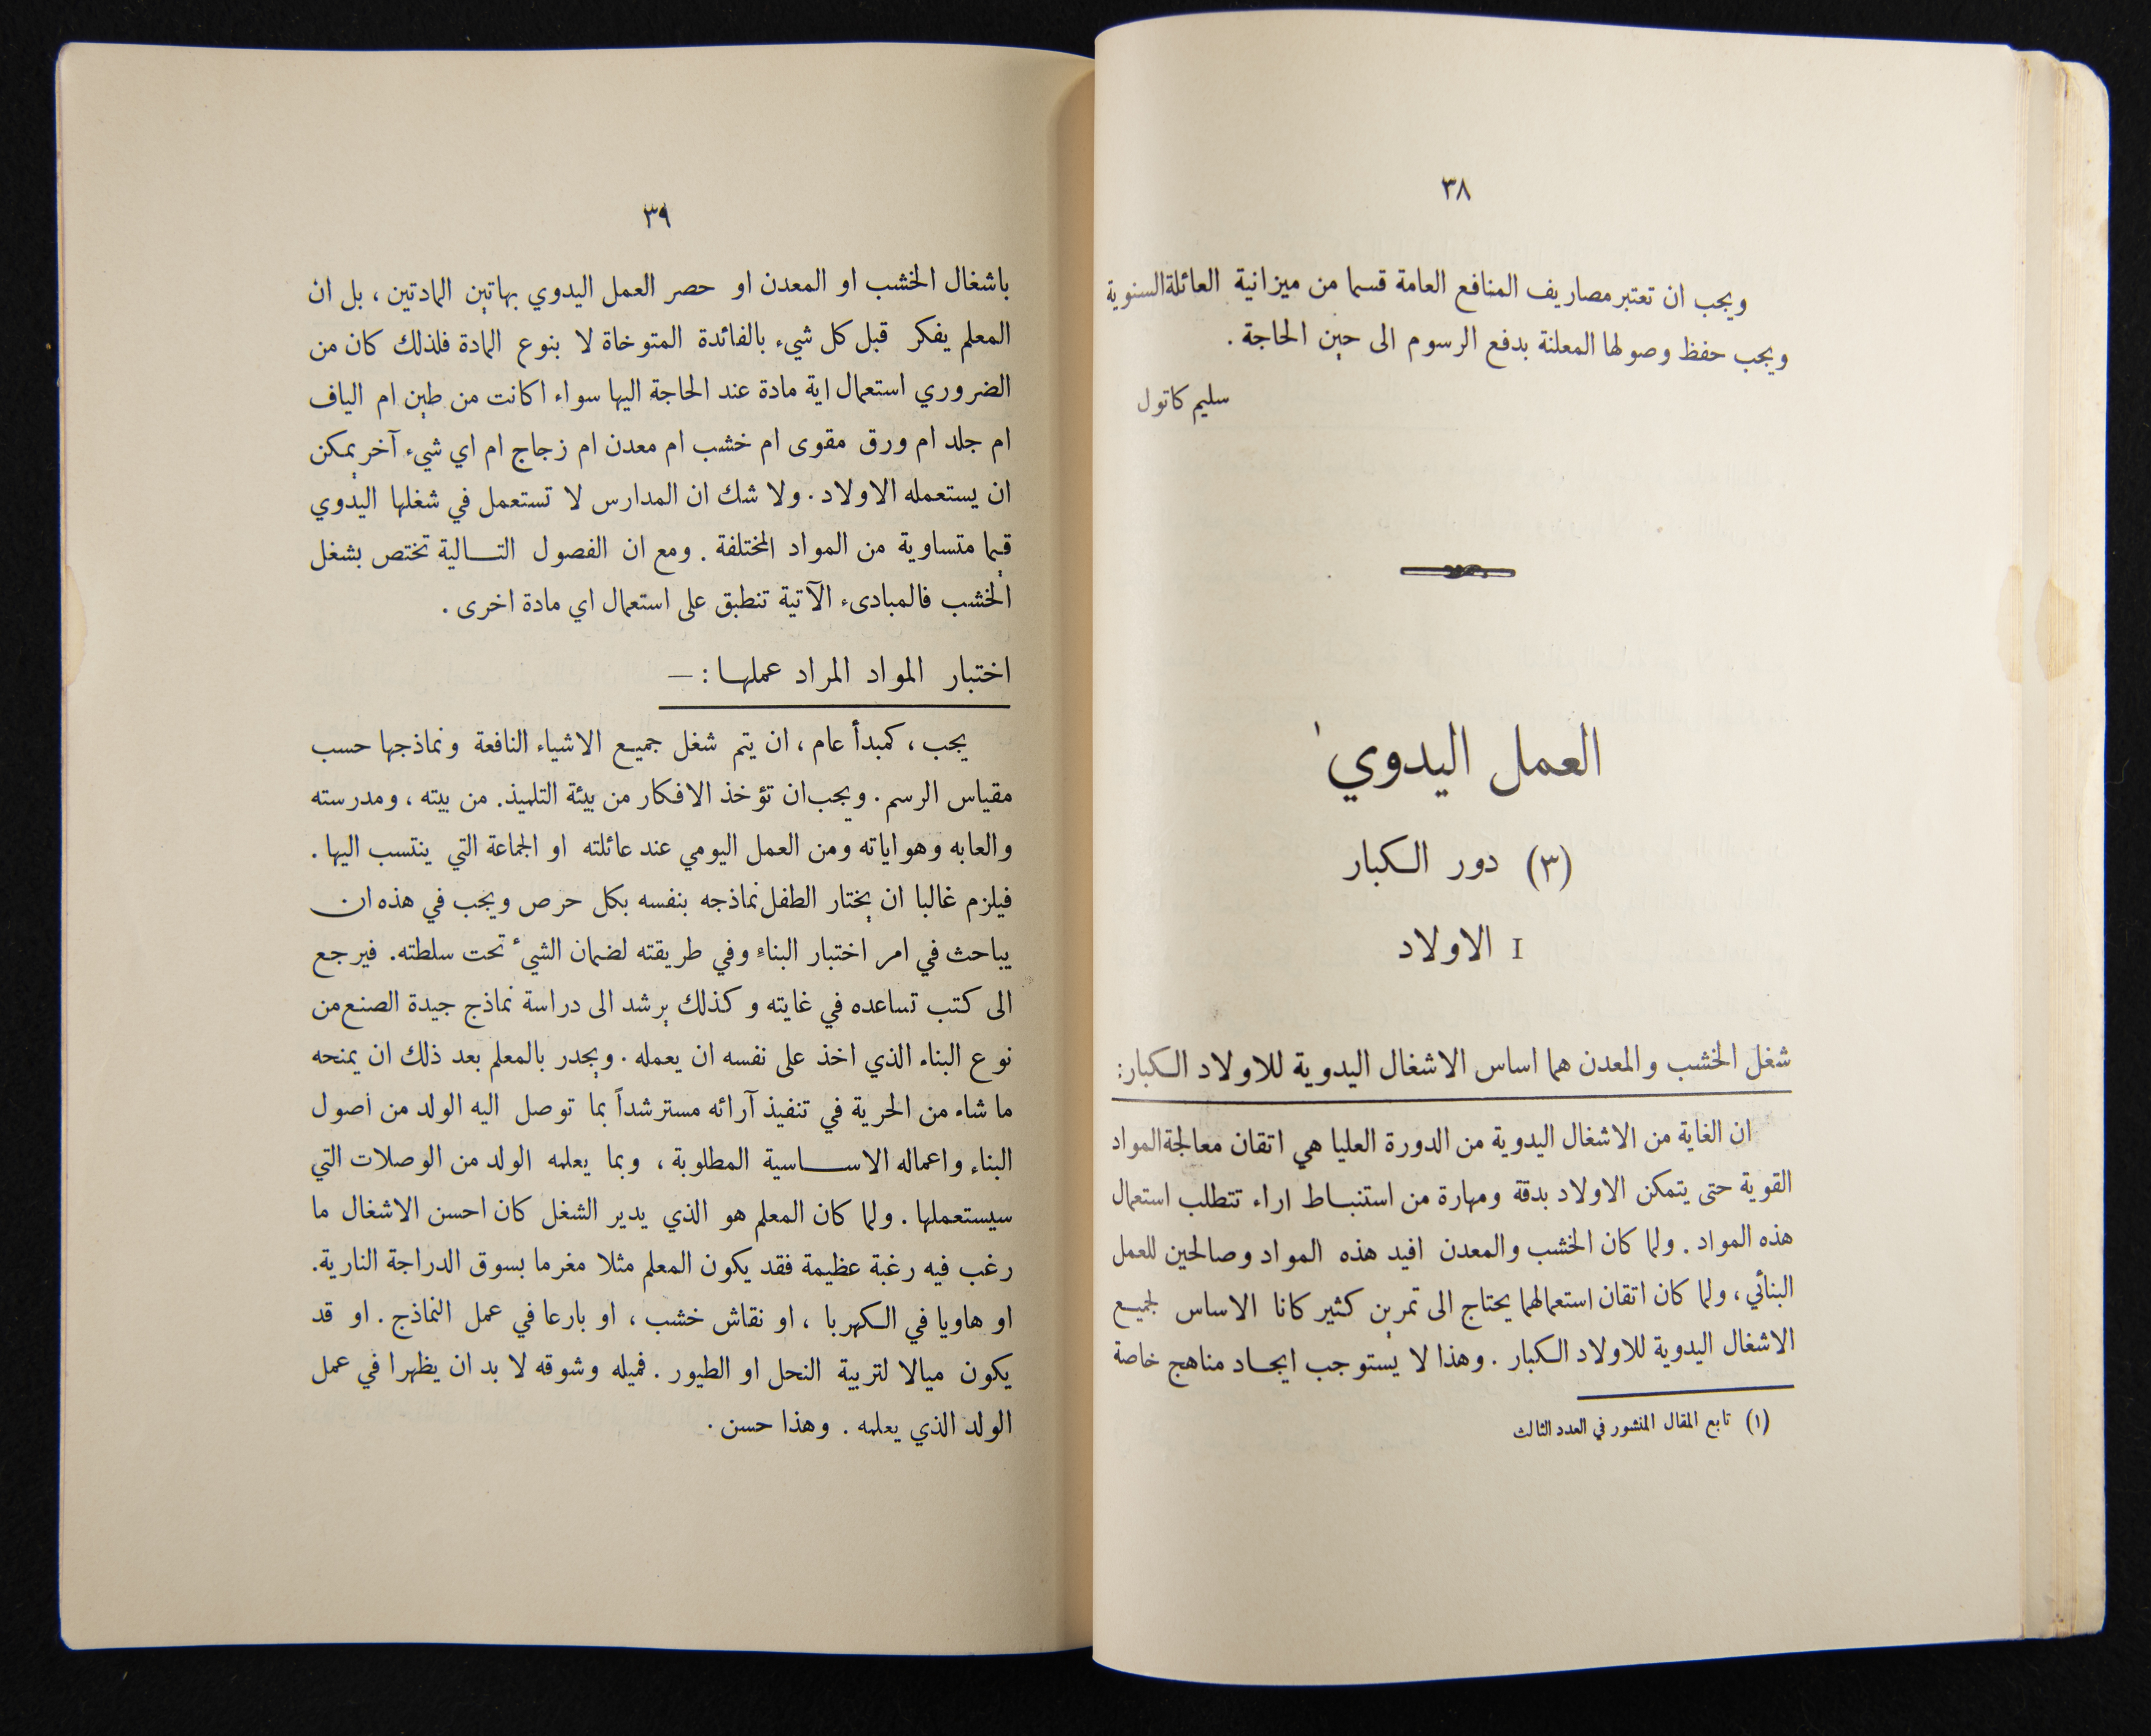 ٣٨
ويجب ان تعتبر مصاريف المنافع العامة قسما من ميزانية العائلة السنوية
ويجب حفظ وصولها المعلنة بدفع الرسوم الى حين الحاجة .
سليم كاتول
العمل اليدوي ١
(٣) دور الكبار
I الاولاد
شغل الخشب والمعدن هما اساس الاشغال اليدوية للاولاد الكبار :
ان الغاية من الاشغال اليدوية من الدورة العليا هي اتقان معالجة المواد
القوية حتى يتمكن الاولاد بدقة ومهارة من استنباط اراء تتطلب استعمال
هذه المواد . ولما كان الخشب والمعدن افيد هذه المواد وصالحين للعمل
البنائي ، ولما كان اتقان استعمالهما يحتاج الى تمرين كثير كانا الاساس لجميع
الاشغال اليدوية للاولاد الكبار . وهذا لا يستوجب ايجاد مناهج خاصة
(١) تابع المقال المنشور في العدد الثالث
٣٩
باشغال الخشب او المعدن او حصر العمل اليدوي بهاتين المادتين ، بل ان
المعلم يفكر قبل كل شيء بالفائدة المتوخاة لا بنوع المادة فلذلك كان من
الضروري استعمال اية مادة عند الحاجة اليها سواء اكانت من طين ام الياف
ام جلد ام ورق مقوى ام خشب ام معدن ام زجاج ام اي شيء آخر يمكن
ان يستعمله الاولاد . ولا شك ان المدارس لا تستعمل في شغلها اليدوي
قيما متساوية من المواد المختلفة . ومع ان الفصول التالية تختص بشغل
الخشب فالمبادىء الآتية تنطبق على استعمال اي مادة اخرى .
اختبار المواد المراد عملها : —
يجب ، كمبدأ عام ، ان يتم شغل جميع الاشياء النافعة ونماذجها حسب
مقياس الرسم . ويجب ان تؤخذ الافكار من بيئة التلميذ . من بيته ، ومدرسته
والعابه وهواياته ومن العمل اليومي عند عائلته او الجماعة التي ينتسب اليها .
فيلزم غالبا ان يختار الطفل نماذجه بنفسه بكل حرص ويجب في هذه ان
يباحث في امر اختبار البناء وفي طريقته لضمان الشيء تحت سلطته . فيرجع
الى كتب تساعده في غايته وكذلك يرشد الى دراسة نماذج جيدة الصنع من
نوع البناء الذي اخذ على نفسه ان يعمله . ويجدر بالمعلم بعد ذلك ان يمنحه
ما شاء من الحرية في تنفيذ آرائه مسترشداً بما توصل اليه الولد من اصول
البناء واعماله الاساسية المطلوبة ، وبما يعلمه الولد من الوصلات التي
سيستعملها . ولما كان المعلم هو الذي يدير الشغل كان احسن الاشغال ما
رغب فيه رغبة عظيمة فقد يكون المعلم مثلا مغرما بسوق الدراجة النارية .
او هاويا في الكهربا ، او نقاش خشب ، او بارعا في عمل النماذج . او قد
يكون ميالا لتربية النحل او الطيور . فميله وشوقه لا بد ان يظهرا في عمل
الولد الذي يعلمه . وهذا حسن .